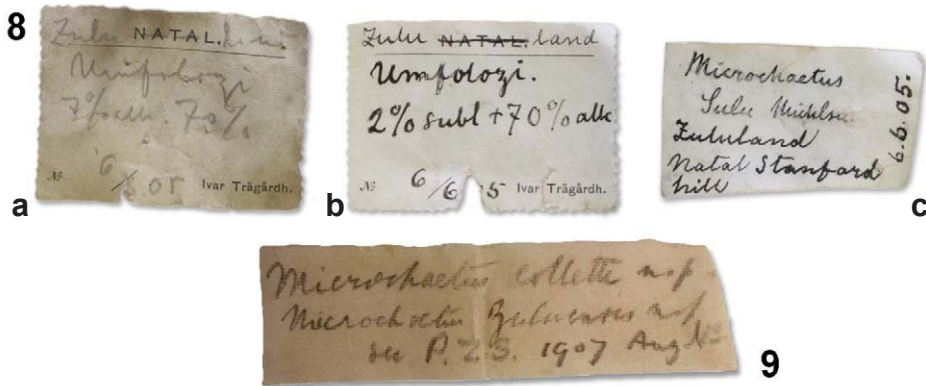 8
Zulu NATAL.
Umfolozi
70%
№ 6/ 05 Ivar Trägårdh.
a
Zulu NATAL. land
Umfolozi.
2% subl + 70% alk
№ 6/6 5 Ivar Trägårdh.
b
Microchaetus
Sulu
Zululand
Natal Stanford
hill
6.6.05.
c
Microchaetus collette n sp
Microchaetus Zuluensis n sp
see P.Z.S. 1907 Aug No
9